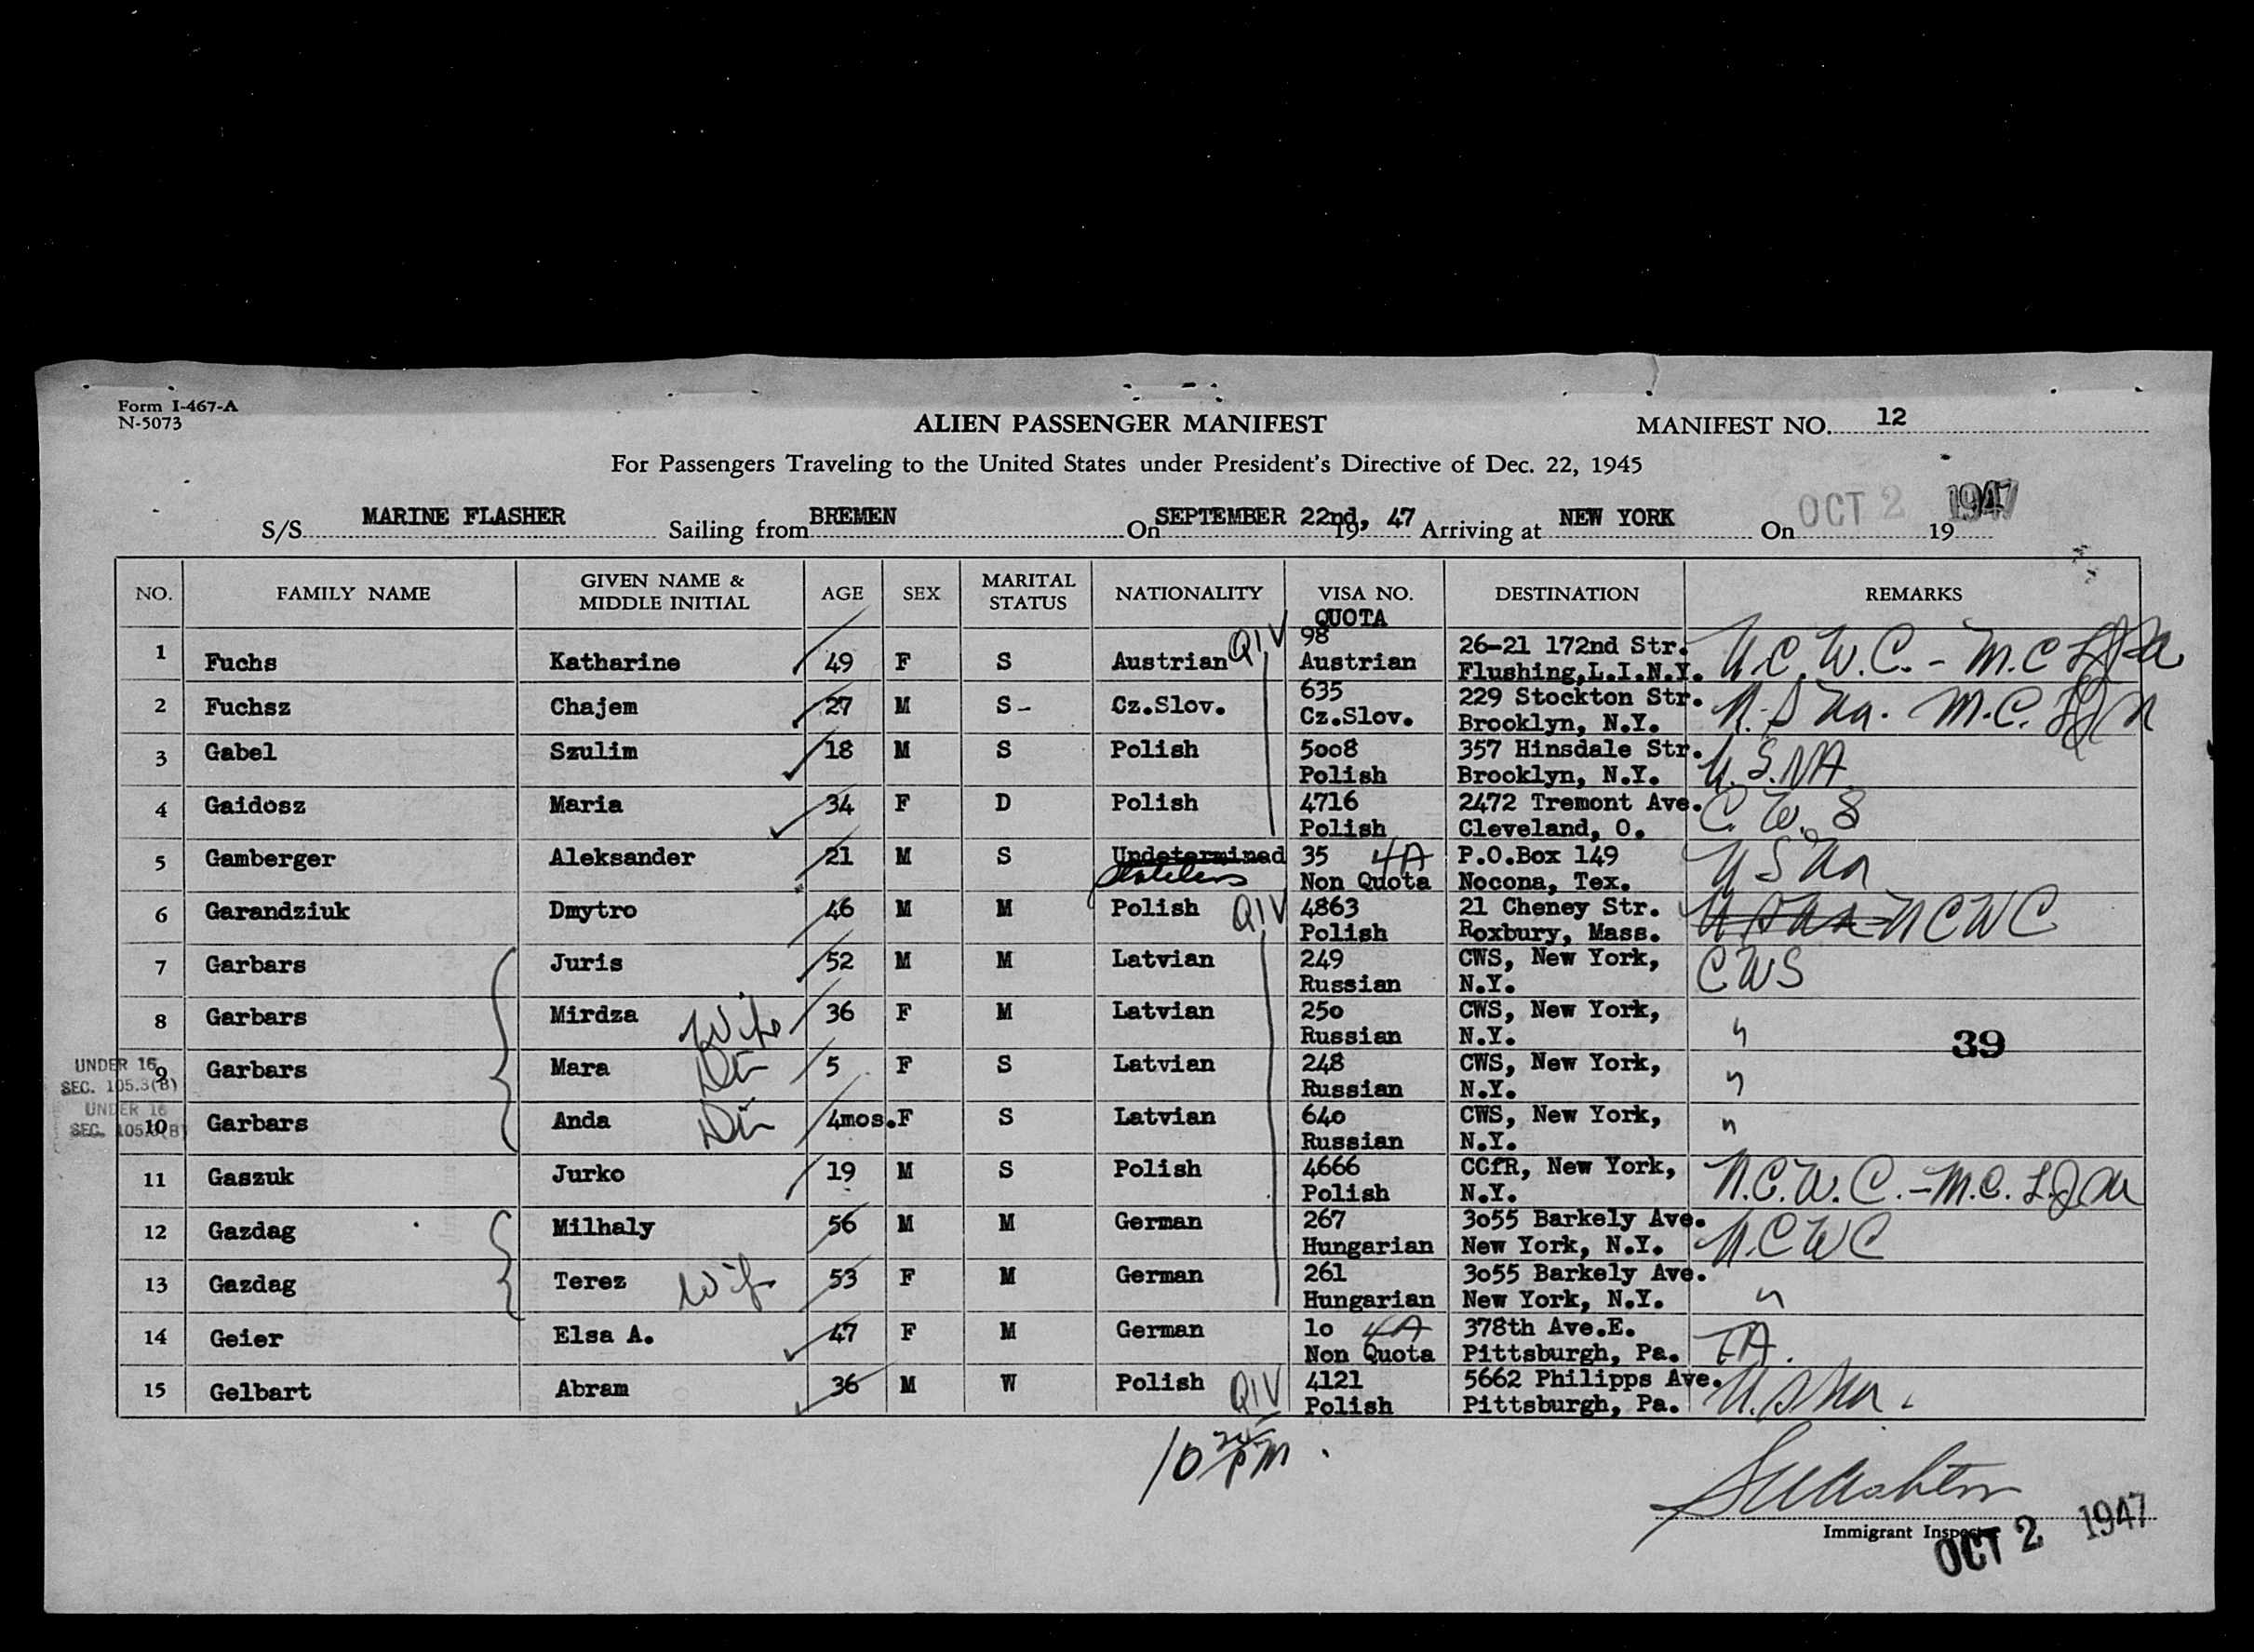 Form I-467-A
N-5073
ALIEN PASSENGER MANIFEST
MANIFEST NO. 12
For Passengers Traveling to the United States under President's Directive of Dec. 22, 1945
S/S MARINE FLASHER Sailing from BREMEN On SEPTEMBER 22nd, 1947 Arriving at NEW YORK On OCT 2 19 1947
NO. FAMILY NAME GIVEN NAME & MIDDLE INITIAL AGE SEX MARITAL STATUS NATIONALITY VISA NO. DESTINATION REMARKS
QUOTA
1 Fuchs Katharine 49 F S Austrian QIV 98 Austrian 26-21 172nd Str. Flushing,L.I.N.Y. N.C.W.C. - M.C.
2 Fuchsz Chajem 27 M S - Cz.Slov. 635 Cz.Slov. 229 Stockton Str. Brooklyn, N.Y. U.S.na. M.C.
3 Gabel Szulim 18 M S Polish 5008 Polish 357 Hinsdale Str. Brooklyn, N.Y. U.S.NA
4 Gaidosz Maria 34 F D Polish 4716 Polish 2472 Tremont Ave. Cleveland, O. C.W.S
5 Gamberger Aleksander 21 M S Undetermined Stateless 35 4A Non Quota P.O.Box 149 Nocona, Tex. USna
6 Garandziuk Dmytro 46 M M Polish QIV 4863 Polish 21 Cheney Str. Roxbury, Mass. USna NCWC
7 Garbars Juris 52 M M Latvian 249 Russian CWS, New York, N.Y. CWS
8 Garbars Mirdza Wife 36 F M Latvian 250 Russian CWS, New York, N.Y. "
39
UNDER 16
SEC. 105.3(B)
9 Garbars Mara 5 F S Latvian 248 Russian CWS, New York, N.Y. "
UNDER 16
SEC. 105.3(B)
10 Garbars Anda 4mos. F S Latvian 640 Russian CWS, New York, N.Y. "
11 Gaszuk Jurko 19 M S Polish 4666 Polish CCfR, New York, N.Y. N.C.W.C. - M.C.
12 Gazdag Milhaly 56 M M German 267 Hungarian 3055 Barkely Ave. New York, N.Y. N.CWC
13 Gazdag Terez Wife 53 F M German 261 Hungarian 3055 Barkely Ave. New York, N.Y. "
14 Geier Elsa A. 47 F M German 10 4A Non Quota 378th Ave.E. Pittsburgh, Pa.
15 Gelbart Abram 36 M W Polish QIV 4121 Polish 5662 Philipps Ave. Pittsburgh, Pa. U.S.na.
10 PM.
Immigrant Inspector
OCT 2 1947